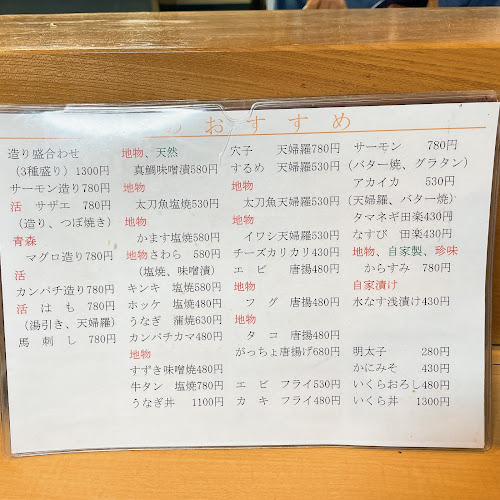 のおすすめ
造り盛合わせ
(3種盛り) 1300円
サーモン造り780円
活 サザエ 780円
(造り、つぼ焼き)
青森
マグロ造り780円
活
カンパチ造り780円
活 はも 780円
(湯引き、天婦羅)
馬刺し 780円
地物、天然
真鯛味噌漬580円
地物
太刀魚塩焼530円
地物
かます塩焼580円
地物さわら 580円
(塩焼、味噌漬)
キンキ 塩焼580円
ホッケ 塩焼480円
うなぎ 蒲焼630円
カンパチカマ480円
地物
すずき味噌焼480円
牛タン 塩焼780円
うなぎ丼 1100円
穴子 天婦羅780円
するめ 天婦羅530円
地物
太刀魚天婦羅530円
地物
イワシ天婦羅530円
チーズカリカリ430円
エビ 唐揚480円
地物
フグ 唐揚480円
地物
タコ 唐揚480円
がっちょ唐揚げ680円
エビ フライ530円
カキ フライ480円
サーモン 780円
(バター焼、グラタン)
アカイカ 530円
(天婦羅、バター焼)
タマネギ田楽430円
なすび 田楽430円
地物、自家製、珍味
からすみ 780円
自家漬け
水なす浅漬け430円
明太子 280円
かにみそ 430円
いくらおろし480円
いくら丼 1300円